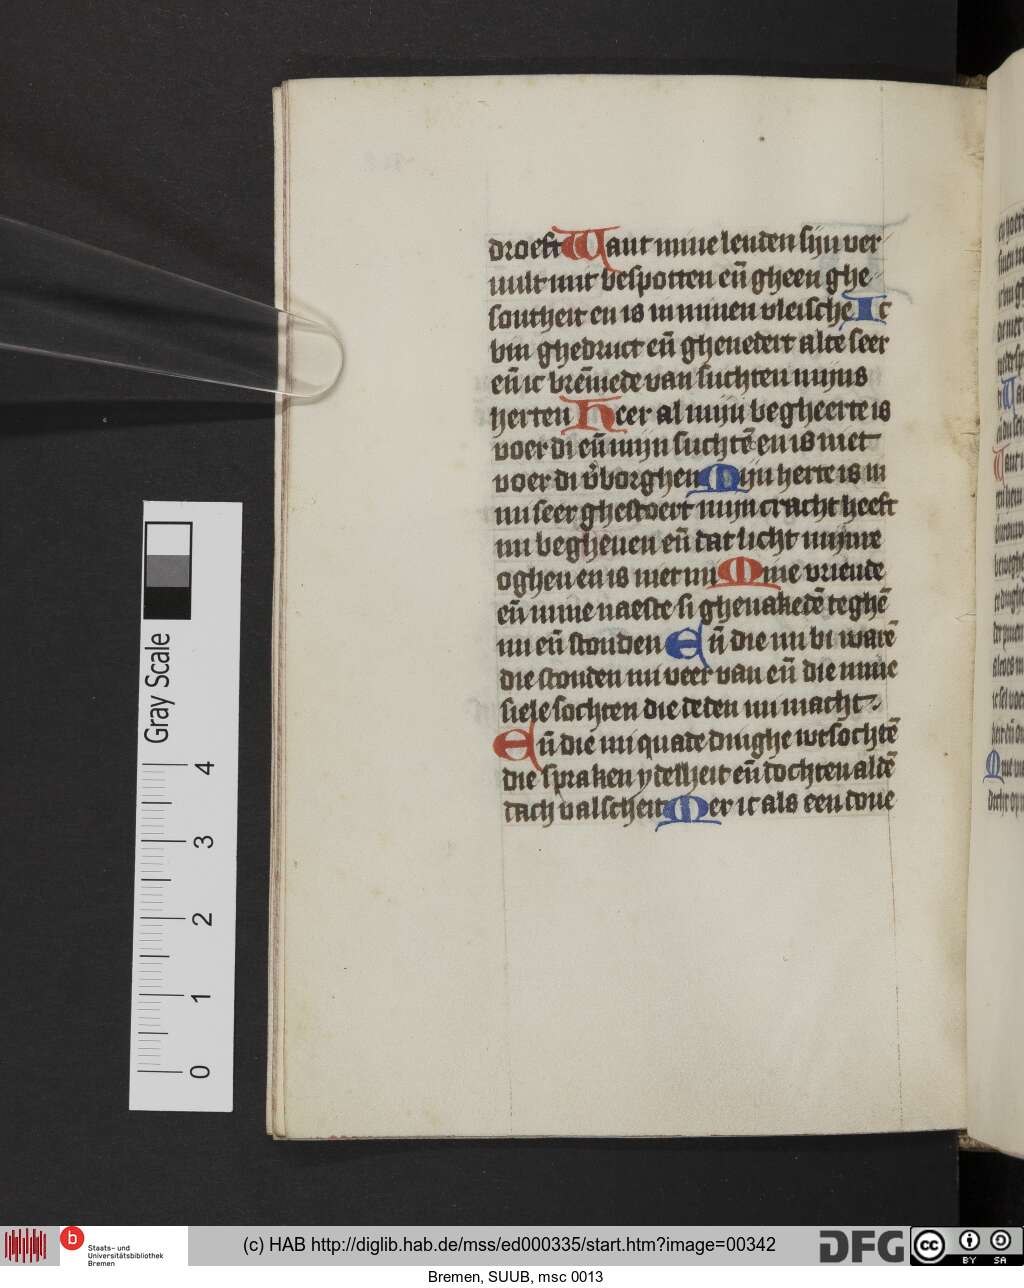 droeft Want mine lenden sijn ver
uult mit bespotten eñ gheen ghe
sontheit en is in minen vleische Ic
bin ghedruct eñ ghenedert alte seer
eñ ic brēmede van suchten mijns
herten Heer al mijn begheerte is
voer di eñ mijn suchtē en is niet
voer di v̓borghen Mijn herte is in
mi seer ghestoert mijn cracht heeft
mi begheuen eñ dat licht mijnre
oghen en is niet mi Mine vriende
eñ mine naeste si ghenakedē teghē
mi eñ stonden Eñ die mi bi warē
die stonden mi veer van eñ die mine
siele sochten die deden mi macht
Eñ die mi quade dinghe wtsochtē
die spraken ydelheit eñ dochten aldē
dach valscheit Mer ic als een doue
Gray Scale
4
3
2
1
0
b Staats- und
Universitätsbibliothek
Bremen
(c) HAB http://diglib.hab.de/mss/ed000335/start.htm?image=00342
DFG
cc BY SA
Bremen, SUUB, msc 0013